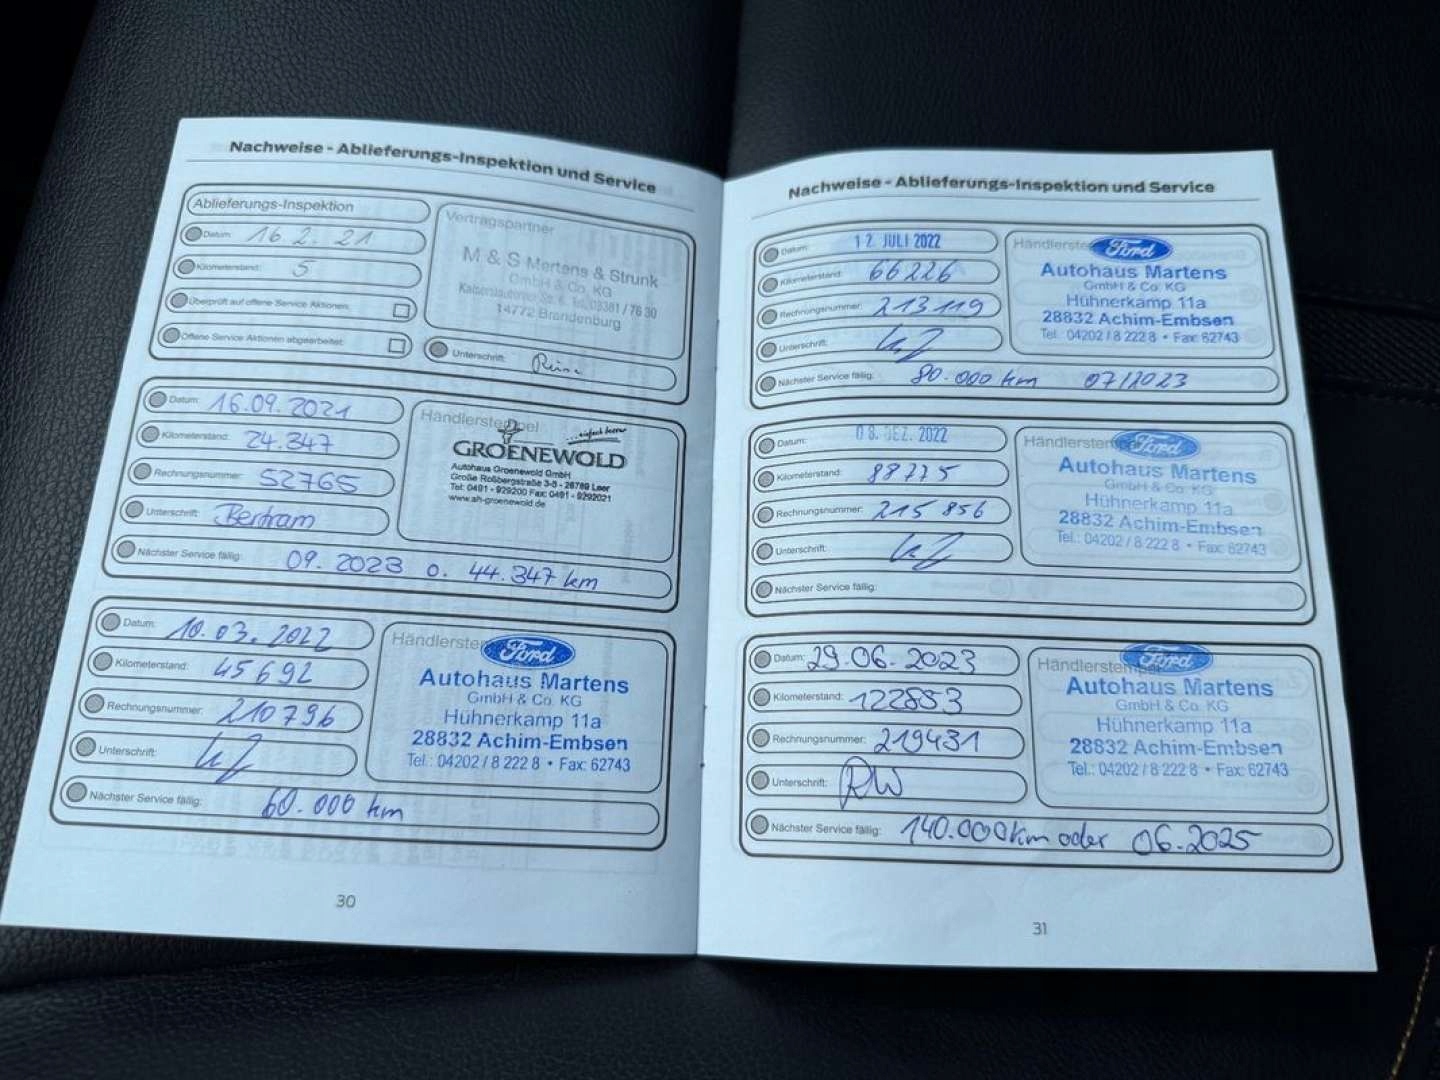 Nachweise - Ablieferungs-Inspektion und Service
Ablieferungs-Inspektion
Datum: 16.2.21
Kilometerstand: 5
Überprüft auf offene Service Aktionen:
Offene Service Aktionen abgearbeitet:
Vertragspartner
M & S Mertens & Strunk
GmbH & Co. KG
14772 Brandenburg
Unterschrift:
Datum: 16.09.2021
Kilometerstand: 24.347
Rechnungsnummer: 52765
Unterschrift: Bertram
Nächster Service fällig: 09.2023 o. 44.347 km
Händlerstempel
...einfach besser
GROENEWOLD
Autohaus Groenewold GmbH
Große Roßbergstraße 3-5 - 26789 Leer
Tel: 0491 - 929200 Fax: 0491 - 9292021
www.ah-groenewold.de
Datum: 10.03.2022
Kilometerstand: 45692
Rechnungsnummer: 210796
Unterschrift:
Nächster Service fällig: 60.000 km
Händlerste
Ford
Autohaus Martens
GmbH & Co. KG
Hühnerkamp 11a
28832 Achim-Embsen
Tel.: 04202 / 8 222 8 • Fax: 62743
30
Nachweise - Ablieferungs-Inspektion und Service
Datum: 12. JULI 2022
Kilometerstand: 66226
Rechnungsnummer: 213119
Unterschrift:
Nächster Service fällig: 80.000 km 07/2023
Händlerste
Ford
Autohaus Martens
GmbH & Co. KG
Hühnerkamp 11a
28832 Achim-Embsen
Tel.: 04202 / 8 222 8 • Fax: 62743
Datum: 08. DEZ. 2022
Kilometerstand: 88775
Rechnungsnummer: 215856
Unterschrift:
Nächster Service fällig:
Händlerste
Ford
Autohaus Martens
GmbH & Co. KG
Hühnerkamp 11a
28832 Achim-Embsen
Tel.: 04202 / 8 222 8 • Fax: 62743
Datum: 29.06.2023
Kilometerstand: 122853
Rechnungsnummer: 219431
Unterschrift: RW
Nächster Service fällig: 140.000km oder 06.2025
Händlerstempel
Ford
Autohaus Martens
GmbH & Co. KG
Hühnerkamp 11a
28832 Achim-Embsen
Tel.: 04202 / 8 222 8 • Fax: 62743
31